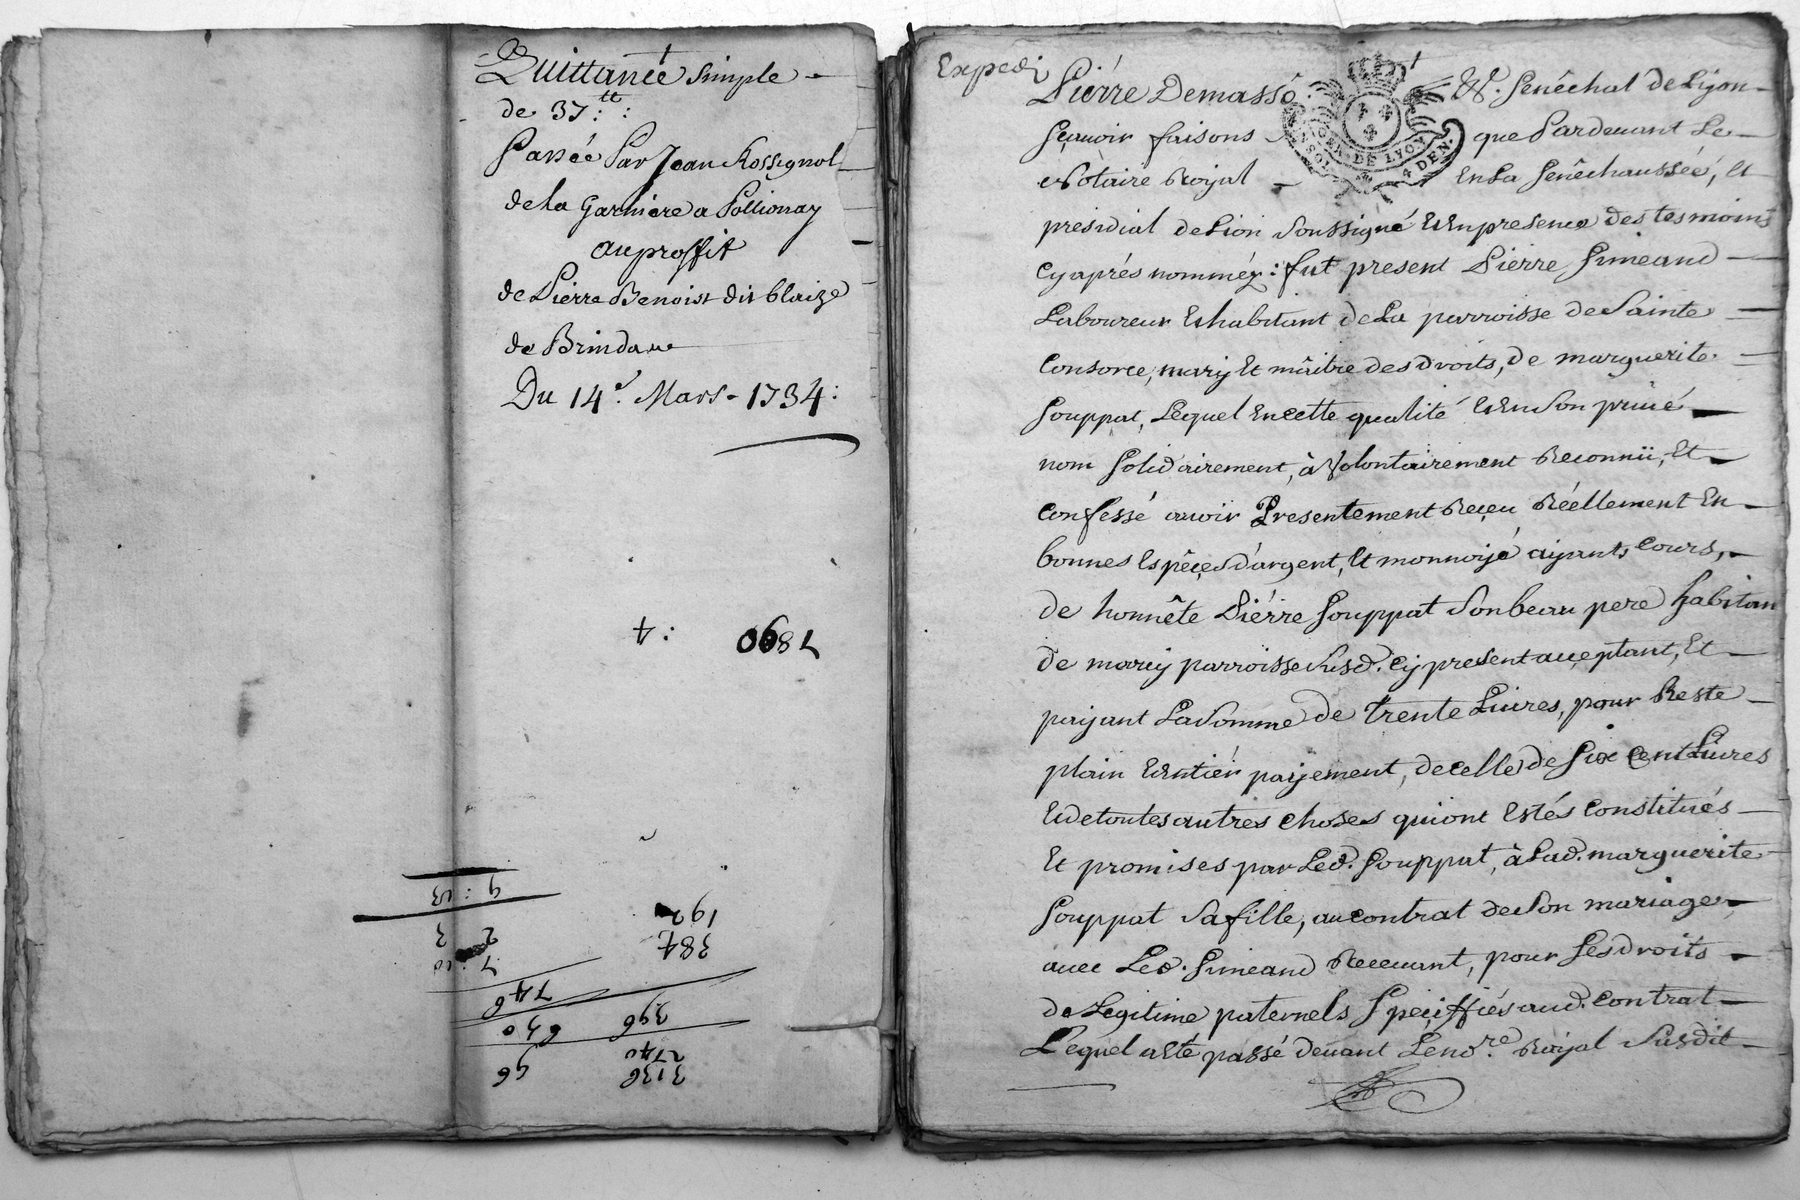 Quittance simple
de 37.tt:
Passée Par Jean Rossignol
de la Garniere a Pollionay
au proffit
de Pierre Benoist dit blaize
de Brindaue
Du 14e. Mars - 1734:
4:
7890
9:13
2 3
7:10
746
630
96
192
384
396
2740
3136
Expedi
Piérre Demasso &. Senêchal de Lÿon
Sçavoir faisons que Pardeuant Le
Nôtaire Roÿal En La Senêchaussée, Et
présidial de Lion Soussigné Et En presence des tesmoins
Cÿ aprés nommez: fut present Pierre Simeand
Laboureur Et habitant de La parroisse de Sainte
Consorce, marÿ Et mâitre des droits, de marguerite
Souppat, Lequel En cette qualité Et En Son priué
nom Solidairement, à Volontairement Reconnü, Et
Confessé auoir Presentement Reçeu Réellement En
bonnes Espéçes d'argent, Et monnoÿe aÿants Cours,
de honnête Piérre Souppat Son beau pere habitan
de marcÿ parroisse Susd. Cÿ present acçeptant, Et
paÿant La Somme de trente Liures, pour Reste
plain Et Entiér paÿement, de celle de Six Cent Liures
Et de toutes autres choses qui ont Estés Constitués
Et promises par Led. Souppat, à Lad. marguerite
Souppat Sa fille, au contrat de Son mariage
auec Led. Simeand Receuant, pour Ses droits
de Legitime paternels Speçiffiés aud. Contrat
Lequel a Eté passé deuant Le nore. Roÿal Susdit
GEN. DE LYON
4 DEN.